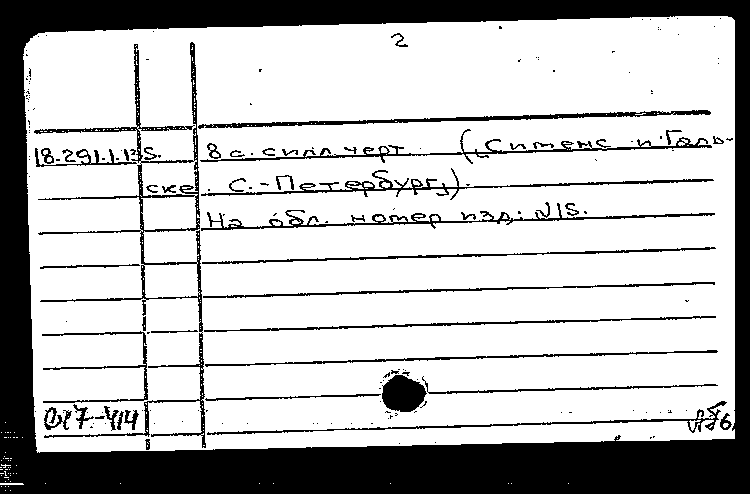 2
18.291.1.13 S. 8 с. силл черт. („Сименс и Галь-
ске. С.-Петербург„).
На обл. номер изд: N15.